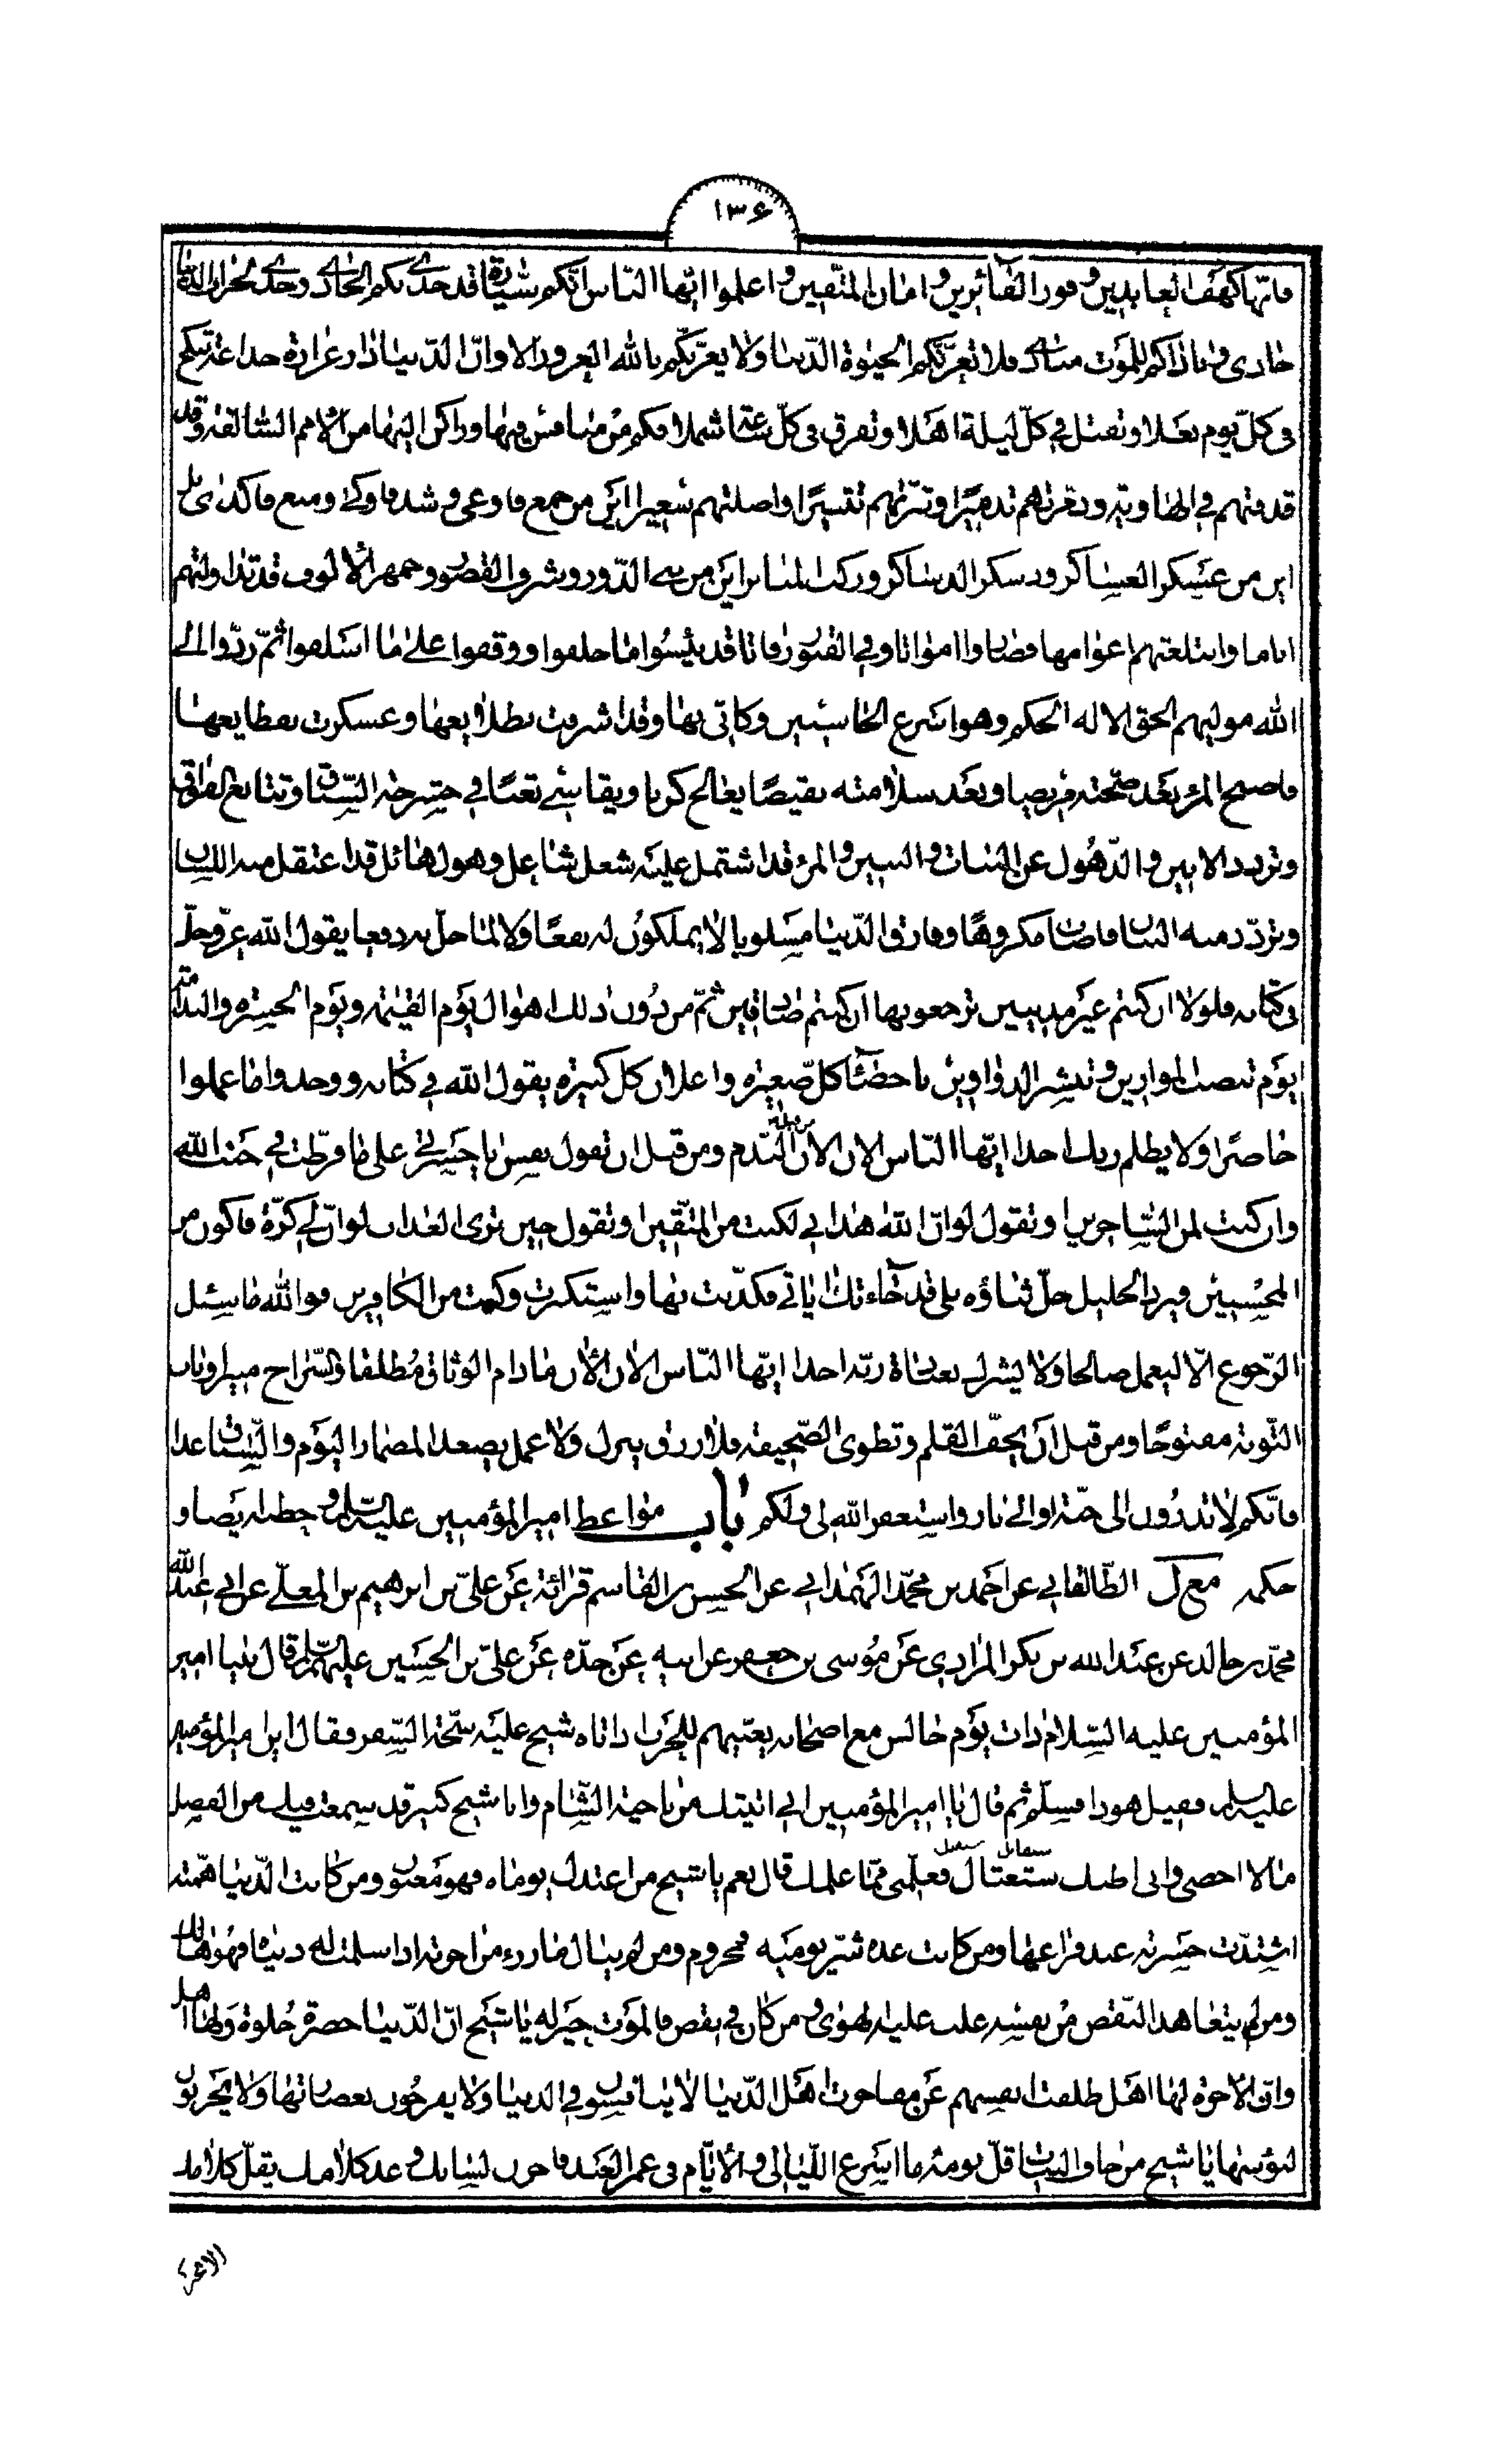 ١٣۶
فانها كهف العابدين وفوز الفائزين وامان المتقين واعلموا ايها الناس انكم سيارة قد حدى بكم الحادى وحدى لخراب الدنيا
حادى وناداكم للموت مناد فلا تغرنكم الحيوة الدنيا ولا يغرنكم بالله الغرور الا وان الدنيا دار غرارة خداعة تنكح
فى كل يوم بعلا وتقتل فى كل ليلة اهلا وتفرق فى كل ساعة شملا فكم من منافس فيها وراكن اليها من الامم السالفة وقد
قذفتهم فى الهاوية ودمرتهم تدميرا وتبرتهم تتبيرا واصلتهم سعيرا اين من جمع فاوعى وشد فاوكى ومنع فاكدى بل
اين من عسكر العساكر ودسكر الدساكر وركب المنابر اين من بنى الدور وشرف القصور وجمهر الالوف قد تداولتهم
اياما وابتلعتهم اعواما فصاروا امواتا وفى القبور رفاتا قد يئسوا ما خلفوا ووقفوا على ما اسلفوا ثم ردوا الى
الله موليهم الحق الا له الحكم وهو اسرع الحاسبين وكانى بها وقد اشرفت بطلايعها وعسكرت بفظايعها
فاصبح المرء بعد صحته مريضا وبعد سلامته نقيصا يعالج كربا ويقاسى تعبا فى حشرجة السباق وتتابع الفواق
وتردد الانين والذهول عن البنات والبنين والمرء قد اشتمل عليه شغل شاغل وهول هائل قد اعتقل منه اللسان
وتردد منه البنان فاصاب مكروها وفارق الدنيا مسلوبا لا يملكون له نفعا ولا لما حل به دفعا يقول الله عز وجل
فى كتابه فلولا ان كنتم غير مدينين ترجعونها ان كنتم صادقين ثم من دون ذلك اهوال يوم القيمة ويوم الحسرة والندامة
يوم تنصب الموازين وتنشر الدواوين باحصاء كل صغيرة واعلان كل كبيرة يقول الله فى كتابه ووجدوا ما عملوا
حاضرا ولا يظلم ربك احدا ايها الناس الان الان من قبل الندم ومن قبل ان تقول نفس يا حسرتى على ما فرطت فى جنب الله
وان كنت لمن الساخرين او تقول لو ان الله هدانى لكنت من المتقين او تقول حين ترى العذاب لو ان لى كرة فاكون من
المحسنين فيرد الجليل جل ثناؤه بلى قد جاءتك اياتى فكذبت بها واستكبرت وكنت من الكافرين فوالله ما سئل
الرجوع الا ليعمل صالحا ولا يشرك بعبادة ربه احدا ايها الناس الان الان مادام الوثاق مطلقا والسراج منيرا وباب
التوبة مفتوحا ومن قبل ان يجف القلم وتطوى الصحيفة فلا رزق ينزل ولا عمل يصعد المضمار اليوم والسباق غدا
فانكم لا تدرون الى جنة او الى نار واستغفر الله لى ولكم باب مواعظ امير المؤمنين عليه السلم وخطبه ايضا و
حكمه مع ل الطالقانى عن احمد بن محمد الهمدانى عن الحسن بن القاسم قرائة عن على بن ابرهيم بن المعلى عن ابى عبد الله
محمد بن خالد عن عبد الله بن بكر المرادى عن موسى بن جعفر عن ابيه عن جده عن على بن الحسين عليهم السلم قال بينا امير
المؤمنين عليه السلام ذات يوم جالس مع اصحابه يعبيهم للحرب اذ اتاه شيخ عليه شحبة السفر فقال اين امير المؤمنين
عليه السلم فقيل هو ذا فسلم ثم قال يا امير المؤمنين انى اتيتك من ناحية الشام وانا شيخ كبير قد سمعت فيك من الفضل
ما لا احصى وانى اظنك ستغتال فعلمنى مما علمك قال نعم يا شيخ من اعتدل يوماه فهو مغبون ومن كانت الدنيا همته
اشتدت حسرته عند فراقها ومن كانت غده شر يوميه فمحروم ومن لم ينال ما زرء من اخرته اذا سلمت له دنياه فهو هالك
ومن لم يتعاهد النقص من نفسه غلب عليه الهوى ومن كان فى نقص فالموت خير له يا شيخ ان الدنيا خضرة حلوة ولها اهل
وان الاخرة لها اهل ظلفت انفسهم عن مفاخرت اهل الدنيا لا يتنافسون فى الدنيا ولا يفرحون بغضارتها ولا يحزنون
لبؤسها يا شيخ من خاف البيات قل نومه ما اسرع الليالى والايام فى عمر العبد فاخزن لسانك وعد كلامك يقل كلامك